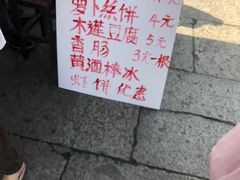 萝卜丝饼 4元
木莲豆腐 5元
香肠 3元一根
黄酒棒冰
虾饼优惠